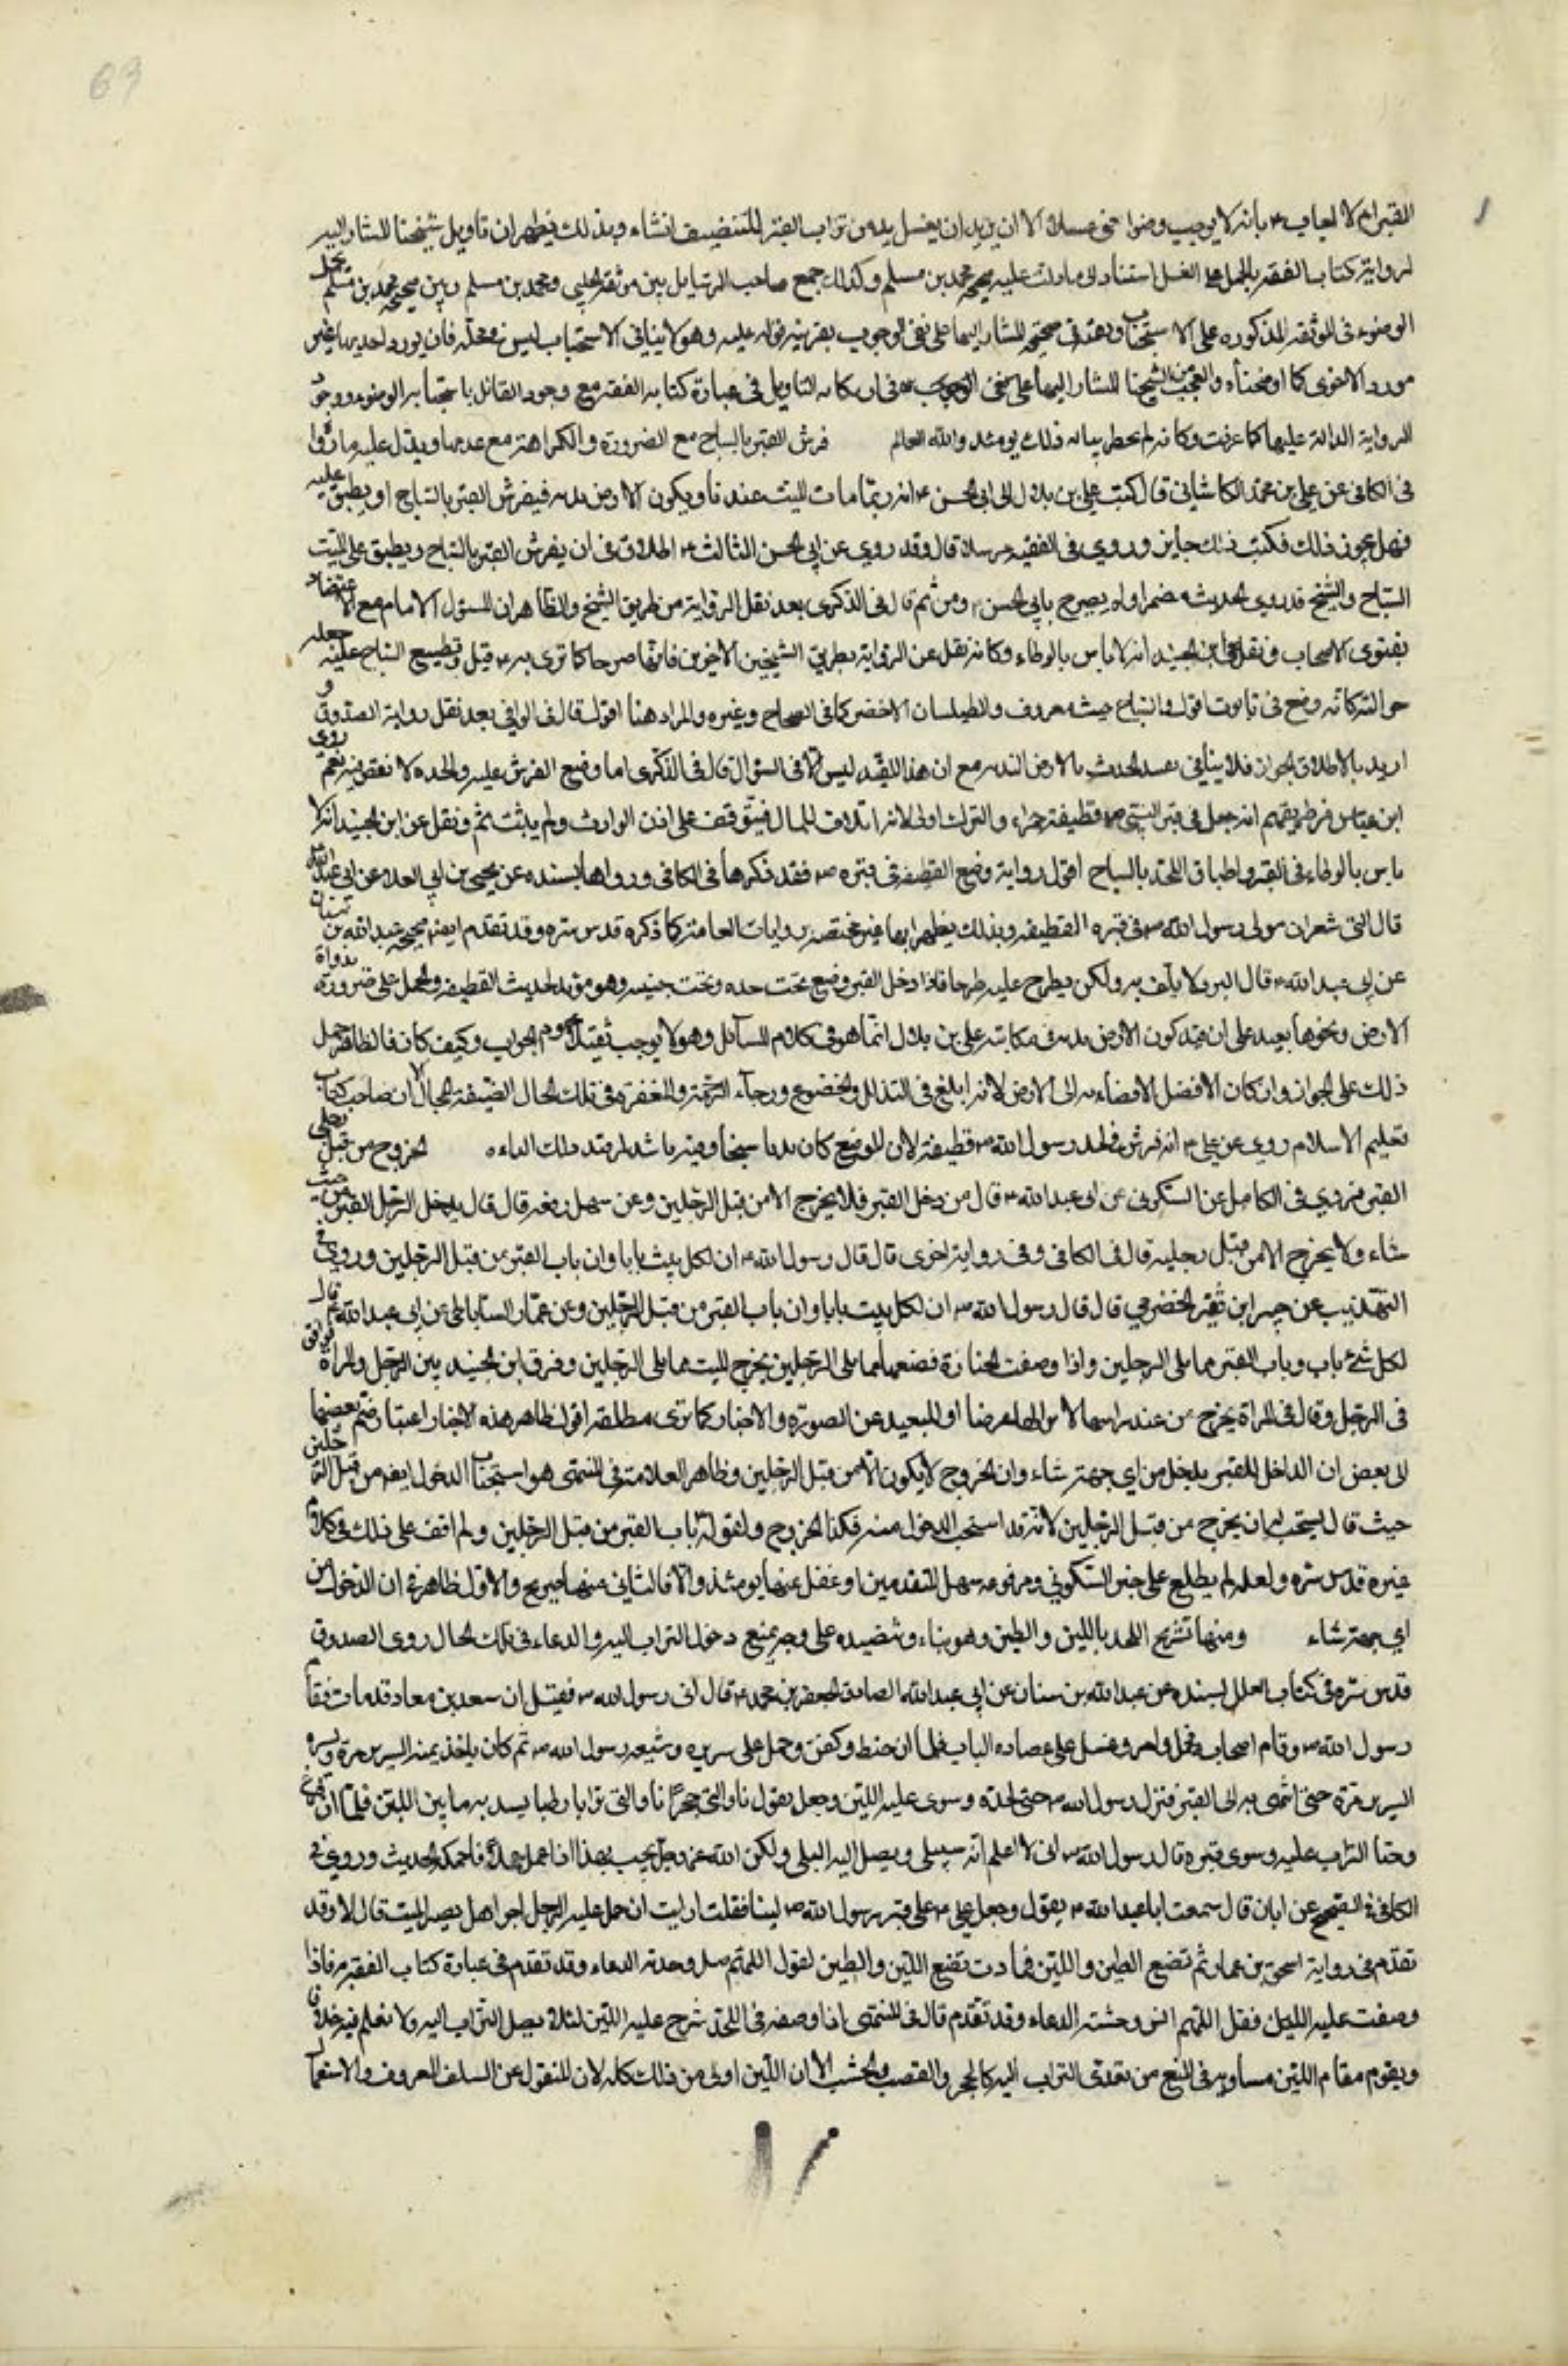 القبر ام لا اجاب ع بأنه لا يوجب وضوا حتى مسلا الا ان يريد ان يغسل يده من تراب القبر للتنضيف انشاء وبذلك فيظهر ان تأويل شيخنا المشار اليه
لرواية كتاب الفقه بالحمل على الغسل استنادا لى مادلت عليه صحيحة محمد بن مسلم وكذلك جمع صاحب الرسايل بين موثقة الحلبي ومحمد بن مسلم وبين صحيحة محمد بن مسلم بحمل
الوضوء في الموثقه المذكوره على الاستحباب وبعده في صحيحة المشار اليها على نفي الوجوب بقرينة قوله عليه وهو لا ينافي الاستحباب ليس في محله فان يورد احديهما غير
مورد الاخرى كما اوضحناه والعجب من شيخنا المشار اليها على نفي الوجوب في اركابه التاويل في عبارة كتابه الفقه مع وجود القائل باستحبابه الوضوء ووجود
الرواية الدالة عليها كما عرفت وكانه لم يخطر بباله ذلك يومئذ والله العالم فرش القبر بالساج مع الضرورة والكراهة مع عدمها ويدل عليه ما رووا
في الكافي عن علي بن محمد الكاشاني قال كتب علي بن بلال الى ابي الحسن ع انه ربما مات الميت عندنا ويكون الارض ندية فيفرش القبر بالساج او يطبق عليه
فهل يجوز ذلك فكتب ذلك جايز وروي في الفقيه مرسلا قال وقد روي عن ابي الحسن الثالث ع اطلاق في ان يفرش القبر بالساج ويطبق على الميت
الساج والشيخ قد روى الحديث مضمرا ولم يصرح بابي الحسن ع ومن ثم قال في الذكرى بعد نقل الرواية من طريق الشيخ والظاهر ان المسؤل الامام مع الاعتضاد
بفتوى الاصحاب ونقل عن ابن الجنيد انه لا باس بالوطاء وكانه نقل عن الرواية بطريق الشيخين الاخرين فانها صرحا كما ترى به ع قيل وتطبيع الساج عليه جعله
حواليه كانه وضع في تابوت اقول والساج خشب معروف والطيلسان الاخضر كما في الصحاح وغيره والمراد هنا اقول قال في الوافي بعد نقل رواية الصدوق و
اريد بالاطلاق الجواز فلا ينافي تقييد الحديث بالارض الندية مع ان هذا القيد ليس الا في السؤال قال في الذكرى اما وضع الفرش عليه والمخده فلا نص فيه نعم روى
ابن عباس من طريقهم انه جعل في قبر النبي ص قطيفة حمراء والترك اولى لانه اتلاف للمال فيتوقف على اذن الوارث ولم يثبت ثم ونقل عن ابن الجنيد انه لا
باس بالوطاء في القبر واطباق اللحد بالساج اقول رواية وضع القطيفة في قبره ص فقد ذكرها في الكافي ورواها بسنده عن يحيى بن ابي العلا عن ابي عبد الله
قال القى شعران مولى رسول الله ص في قبره القطيفه وبذلك يظهر انها غير مختصه بروايات العامة كما ذكره قدس سره وقد تقدم ايضا صحيحة عبد الله بن سنان
عن ابي عبد الله ع قال البرد لا يلف به ولكن يطرح عليه طرحا فاذا ادخل القبر وضع تحت خده وتحت جنبيه وهو مؤيد لحديث القطيفه والحمل على ضرورة نداوة
الارض ونحوها بعيد على ان قيد كون الارض ندية في مكاتبة علي بن بلال انما هو في كلام السائل وهو لا يوجب تقييد عموم الجواب وكيف كان فالظاهر حمل
ذلك على الجواز وان كان الافضل الافضاء به الى الارض لانه ابلغ في التذلل والخضوع ورجاء الرحمة والمغفرة في تلك الحال الضيقة المجال ان صاحب كتاب
تعليم الاسلام روى عن علي ع انه فرش في لحد رسول الله ص قطيفة لان الموضع كان نديا سبخا الخروج من قبل رجلى
القبر فروي في الكامل عن السكوني عن ابي عبد الله ع قال من دخل القبر فلا يخرج الا من قبل الرجلين وعن سهل رفعه قال قال يدخل الرجل القبر من حيث
شاء ولا يخرج الا من قبل رجليه قال في الكافي وفي رواية اخرى قال قال رسول الله ص ان لكل بيت بابا وان باب القبر من قبل الرجلين وروى في
التهذيب عن جبير ابن نقير الحضرمي قال قال رسول الله ص ان لكل بيت بابا وان باب القبر من قبل الرجلين وعن عمار الساباطي عن ابي عبد الله ع قال
لكل شئ باب وباب القبر مما يلي الرجلين واذا وضعت الجنازة فضعها مما يلي الرجلين يخرج الميت مما يلي الرجلين وفرق ابن الجنيد بين الرجل والمراة
في الرجل وقال في المراة يخرج من عند راسها لانزالها عرضا او للبعيد عن الصورة والاخبار كما ترى مطلقة اقول ظاهر هذه الاخبار باعتبار ضم بعضها
الى بعض ان الداخل للقبر يدخل من اي جهة شاء وان الخروج لا يكون الا من قبل الرجلين وظاهر العلامة في المنتهى هو استحباب الدخول ايضا من قبل الرجلين
حيث قال يستحب له ان يخرج من قبل الرجلين لانه قد استحب الدخول منه فكذا الخروج ولقوله باب القبر من قبل الرجلين ولم اقف على ذلك في كلام
غيره قدس سره ولعله لم يطلع على خبر السكوني ومرفوعه سهل المتقدمين او غفل عنهما يومئذ والا فالثاني منهما صريح والاول ظاهر في ان الدخول من
اي جهة شاء ومنها تشريج اللحد باللبن والطين وهو بناء وتنضيده على وجه يمنع دخول التراب اليه والدعاء في تلك الحال روى الصدوق
قدس سره في كتاب العلل بسنده عن عبد الله بن سنان عن ابي عبد الله الصادق جعفر بن محمد ع قال اتى رسول الله ص فقيل ان سعد بن معاذ قد مات فقام
رسول الله ص وقام اصحابه فحمل وامر فغسل على عضاده الباب فلما ان حنط وكفن وحمل على سريره وشيعه رسول الله ص ثم كان ياخذ يمنة السرير مرة ويسرة
السرير مرة حتى انتهى به الى القبر فنزل رسول الله ص حتى لحده وسوى عليه اللبن وجعل يقول ناولني حجرا ناولني ترابا رطبا يسد به ما بين اللبن فلما ان فرغ
وحثا التراب عليه وسوى قبره قال رسول الله ص اني لا اعلم انه سيبلى ويصل اليه البلى ولكن الله عز وجل يحب عبدا اذا عمل عملا فاحكمه الحديث وروي في
الكافي في الصحيح عن ابان قال سمعت ابا عبد الله ع يقول وجعل علي ع على قبر رسول الله ص لبنا فقلت ارايت ان جعل عليه الرجل اجرا هل يضر الميت قال لا وقد
تقدم في رواية اسحق بن عمار ثم تضع الطين واللبن فما دمت تضع اللبن والطين تقول اللهم صل وحدته الدعاء وقد تقدم في عبارة كتاب الفقه فاذا
وضعت عليه اللبن فقل اللهم انس وحشته الدعاء وقد تقدم قال في المنتهى اذا وضعه في اللحد شرج عليه اللبن لئلا يصل التراب اليه ولا نعلم فيه خلافا
ويقوم مقام اللبن مساويه في المنع من تعدى التراب اليه كالحجر والقصب والخشب الا ان اللبن اولى من ذلك كله لان المنقول عن السلف المعروف والاستعمال